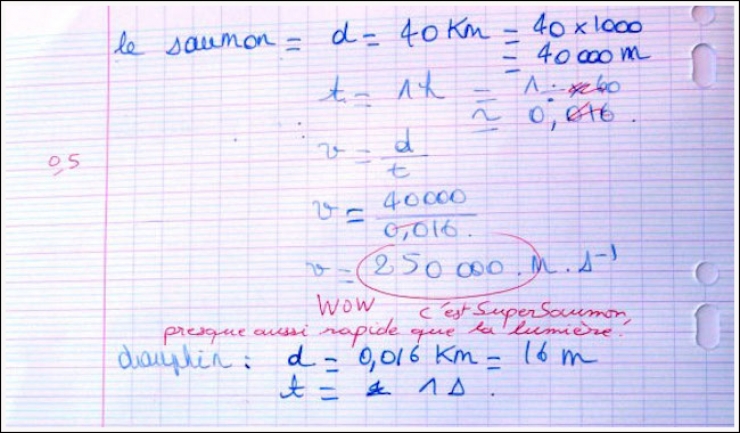 le saumon = d = 40 Km = 40 x 1000
= 40 000 m
t = 1 h = 1 : 60
≃ 0,016.
0,5
v = d/t
v = 40000/0,016.
v = 250 000. M. s⁻¹
WOW c'est SuperSaumon,
presque aussi rapide que la lumière.
dauphin : d = 0,016 Km = 16 m
t = 1 s.